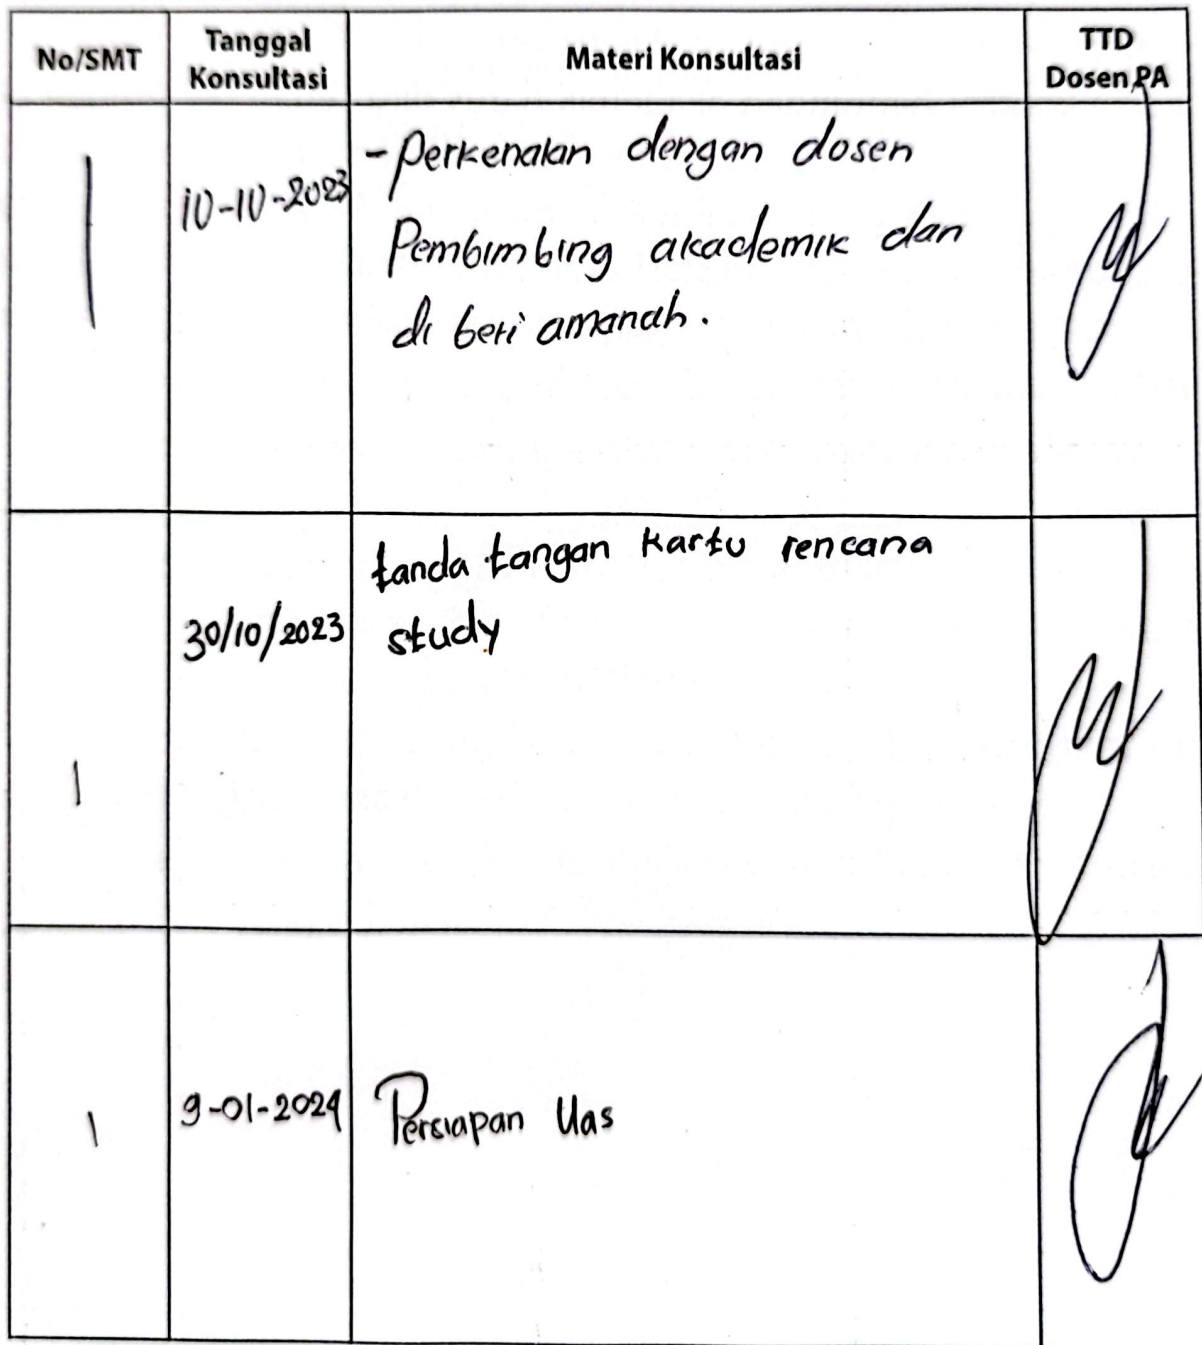 No/SMT
Tanggal
Konsultasi
Materi Konsultasi
TTD
Dosen PA
1
10-10-2023
- Perkenalan dengan dosen
Pembimbing akademik dan
di beri amanah.
1
30/10/2023
tanda tangan kartu rencana
study
1
9-01-2024
Persiapan Uas